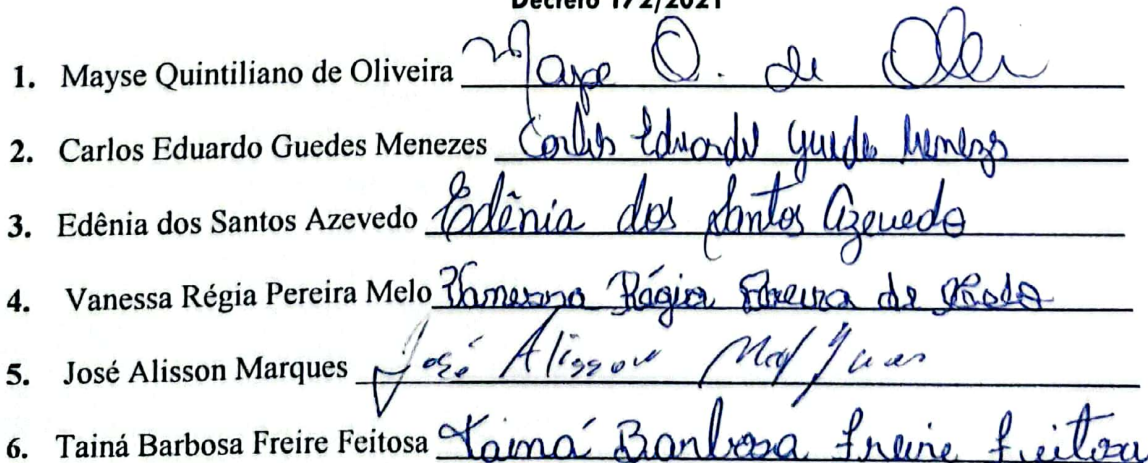 Decreto 172/2021
1. Mayse Quintiliano de Oliveira Mayse Q. de Oli
2. Carlos Eduardo Guedes Menezes Carlos Eduardo Guedes Menezes
3. Edênia dos Santos Azevedo Edênia dos Santos Azevedo
4. Vanessa Régia Pereira Melo Vanessa Régia Pereira de
5. José Alisson Marques José Alisson Marques
6. Tainá Barbosa Freire Feitosa Tainá Barbosa Freire Feitosa